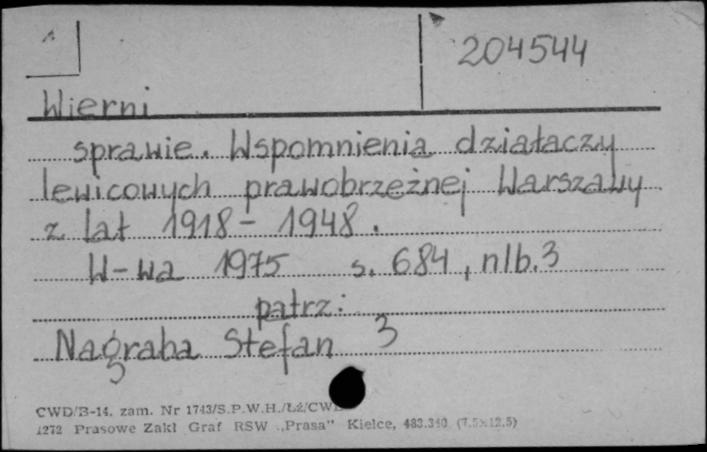 204544
Wierni
sprawie. Wspomnienia działaczy
lewicowych prawobrzeżnej Warszawy
z lat 1918-1948.
W-wa 1975 s. 684, nlb. 3
patrz:
Nagraba Stefan 3
CWD/B-14. zam. Nr 1743/S.P.W.H./Łż/CWD
1272 Prasowe Zakł Graf RSW „Prasa” Kielce, 483.340 (7.5×12.5)